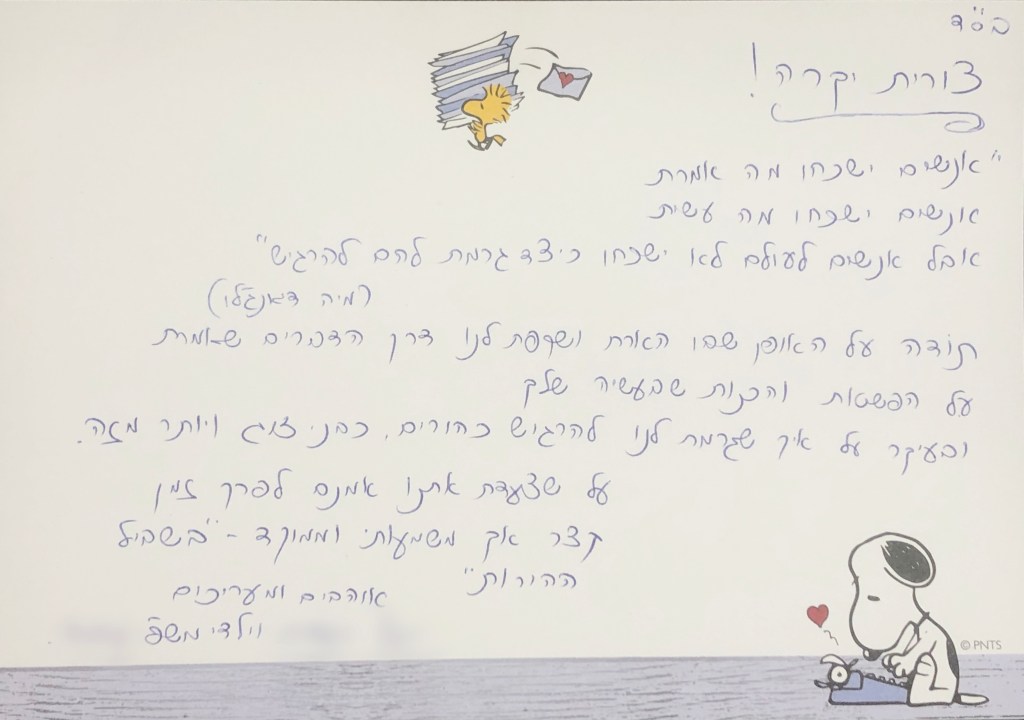 בס"ד
צורית יקרה!
"אנשים ישכחו מה אמרת
אנשים ישכחו מה עשית
אבל אנשים לעולם לא ישכחו כיצד גרמת להם להרגיש"
(מיה אנג'לו)
תודה על האופן שבו הארת ושקפת לנו דרך הדברים שאמרת
על הפשטות והכנות שבעשיה שלך
ובעיקר על איך שגרמת לנו להרגיש כהורים, כבני זוג ויותר מזה.
על שצעדת אתנו אמנם לפרק זמן
קצר אך משמעותי וממוקד - "בשביל
ההורות"
אוהבים ומעריכים
וילדי משפ'
© PNTS